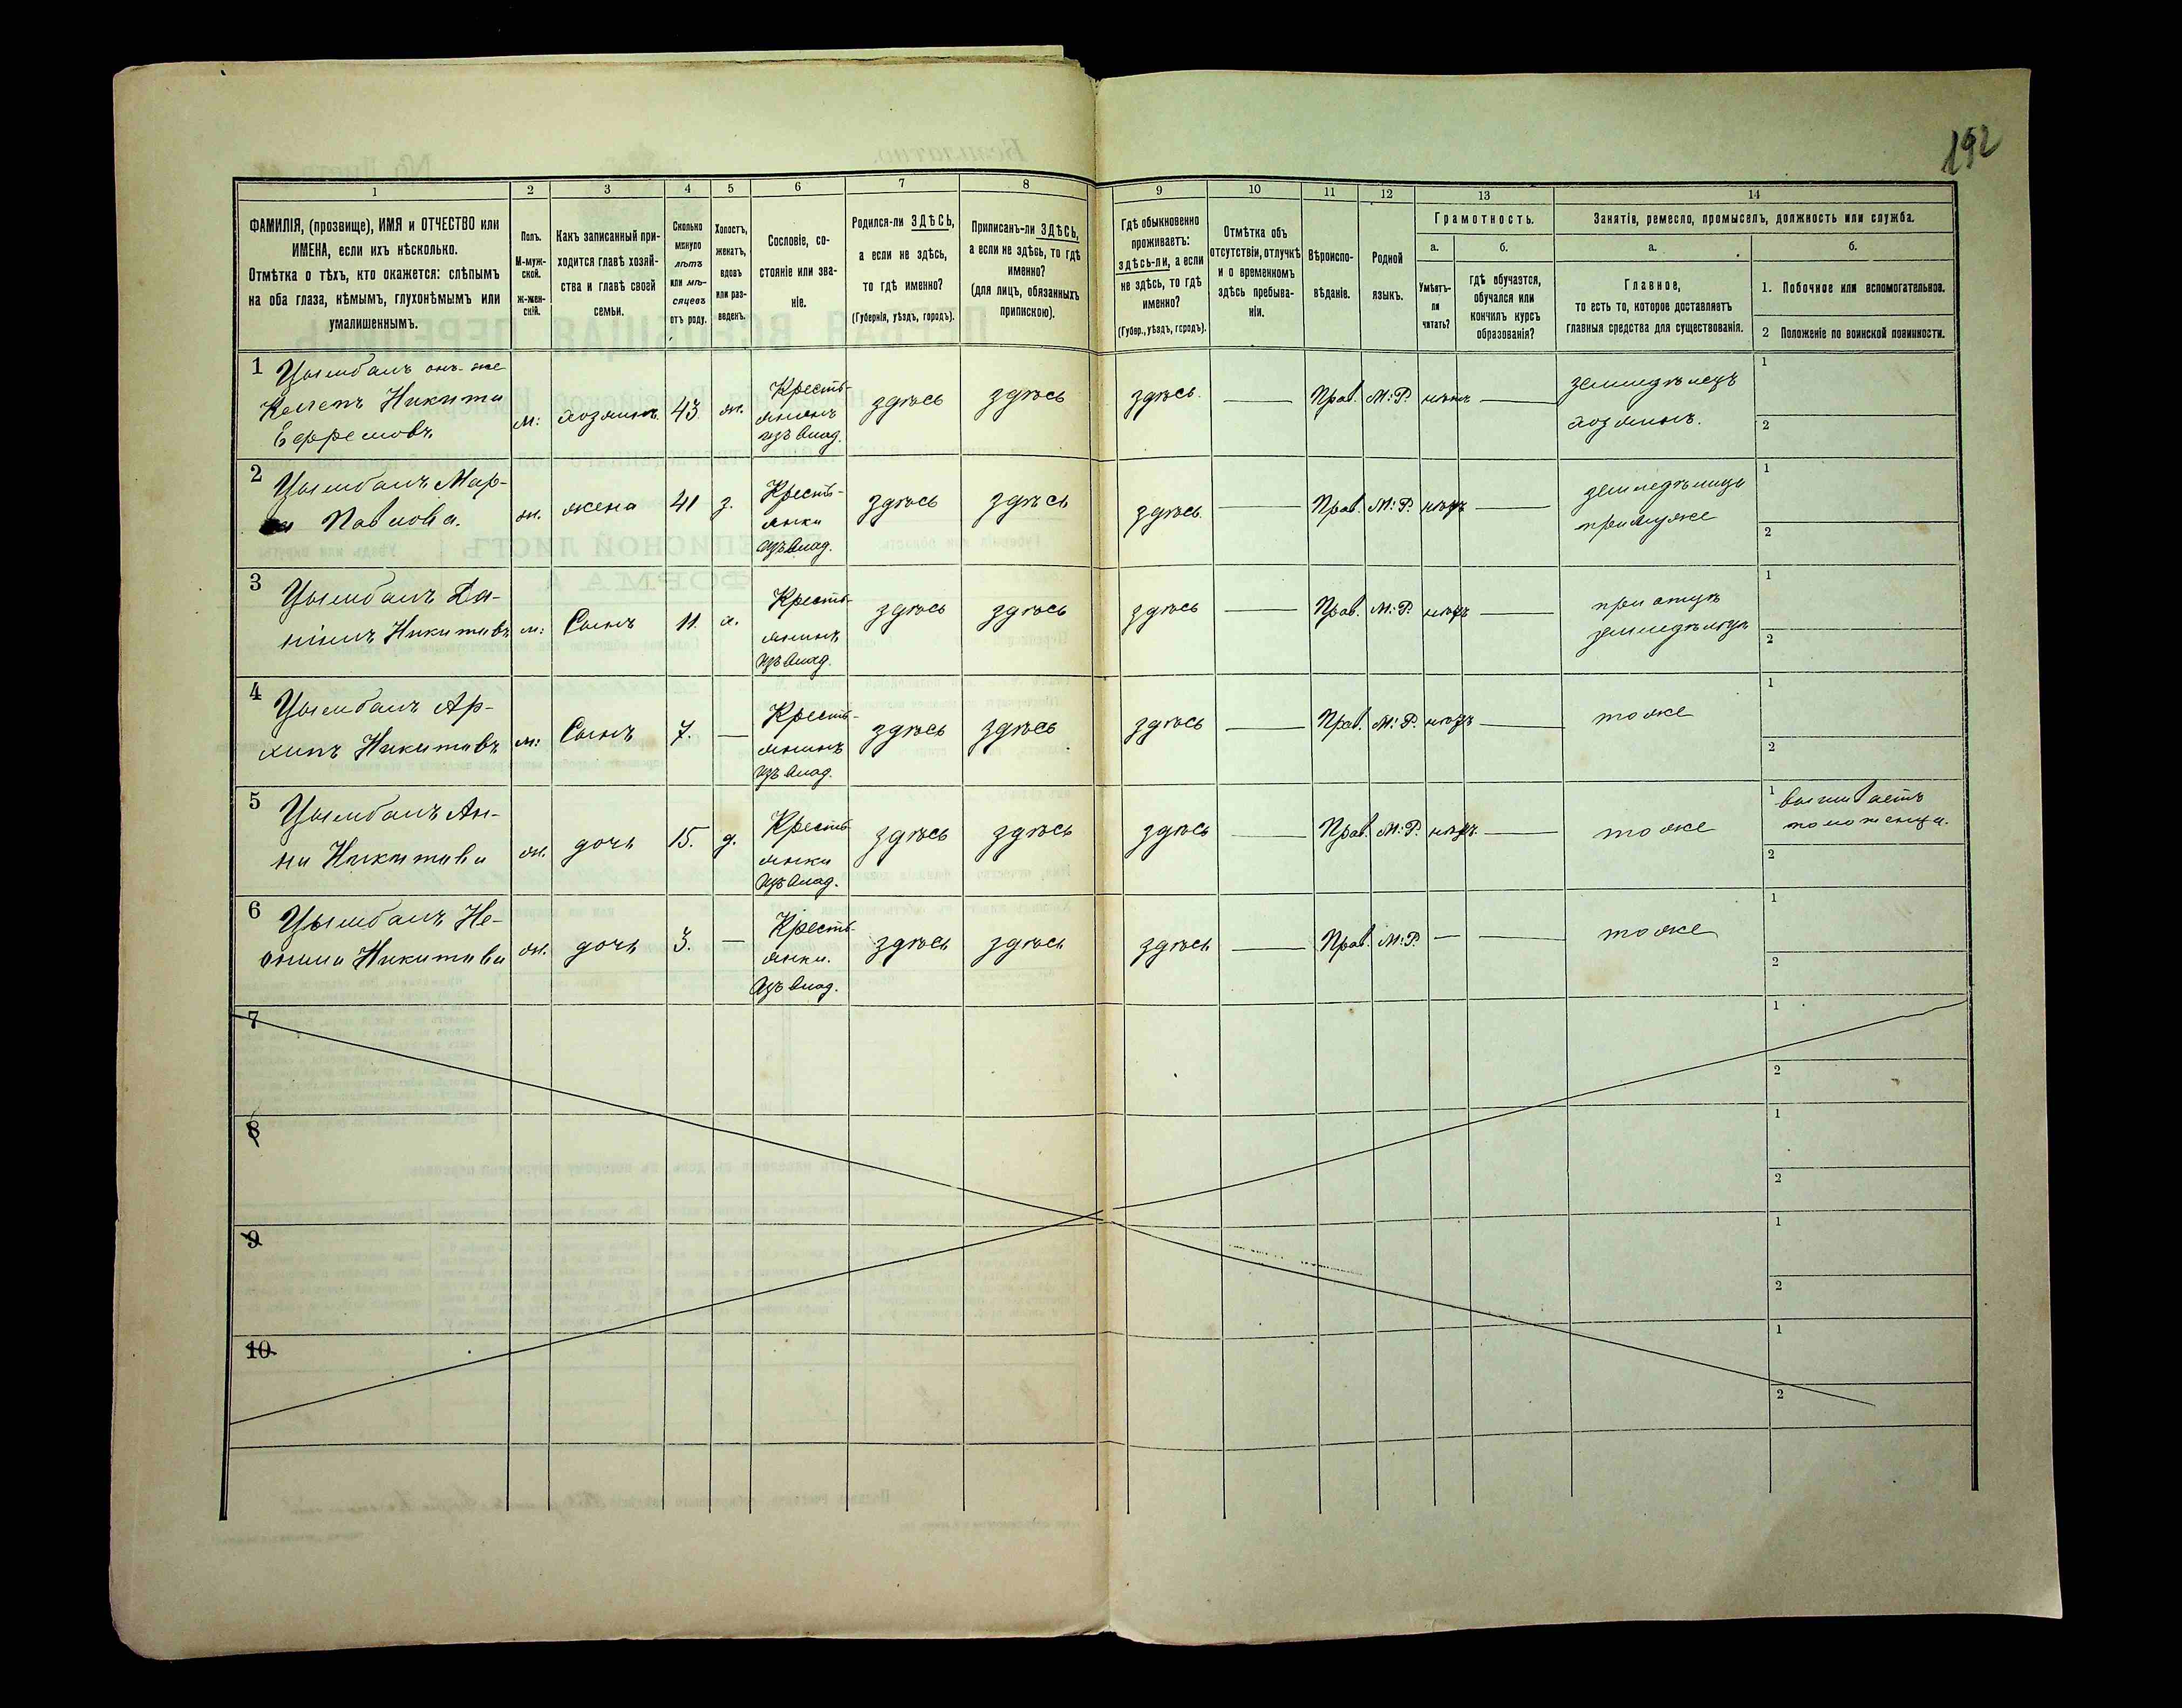 192
1 2 3 4 5 6 7 8 9 10 11 12 13 14
ФАМИЛІЯ, (прозвище), ИМЯ и ОТЧЕСТВО или
ИМЕНА, если ихъ нѣсколько.
Отмѣтка о тѣхъ, кто окажется: слѣпымъ
на оба глаза, нѣмымъ, глухонѣмымъ или
умалишеннымъ.
Полъ.
М-муж-
ской.
ж-жен-
скій.
Какъ записанный при-
ходится главѣ хозяй-
ства и главѣ своей
семьи.
Сколько
минуло
лѣтъ
или мѣ-
сяцевъ
отъ роду.
Холостъ,
женатъ,
вдовъ
или раз-
веденъ.
Сословіе, со-
стояніе или зва-
ніе.
Родился-ли ЗДѢСЬ,
а если не здѣсь,
то гдѣ именно?
(Губернія, уѣздъ, городъ).
Приписанъ-ли ЗДѢСЬ,
а если не здѣсь, то гдѣ
именно?
(для лицъ, обязанныхъ
припискою).
Гдѣ обыкновенно
проживаетъ:
здѣсь-ли, а если
не здѣсь, то гдѣ
именно?
(Губер., уѣздъ, городъ).
Отмѣтка объ
отсутствіи, отлучкѣ
и о временномъ
здѣсь пребыва-
ніи.
Вѣроиспо-
вѣданіе.
Родной
языкъ.
Грамотность.
а. б.
Умѣетъ-
ли
читать?
гдѣ обучается,
обучался или
кончилъ курсъ
образованія?
Занятія, ремесло, промыселъ, должность или служба.
а. б.
Главное,
то есть то, которое доставляетъ
главныя средства для существованія.
1. Побочное или вспомогательное.
2 Положеніе по воинской повинности.
1 Цымбалъ онъ-же
Никита
Ефремовъ
м. хозяинъ 43 ж.
Кресть-
янинъ
изъ влад.
здѣсь здѣсь здѣсь. — Прав. М.Р. нѣтъ —
земледѣлецъ
хозяинъ.
1
2
2 Цымбалъ Мар-
Павлова.
ж. жена 41 з.
Кресть-
янка
изъ влад.
здѣсь здѣсь здѣсь. — Прав. М.Р. нѣтъ —
земледѣлица
при мужѣ
1
2
3 Цымбалъ Да-
ніилъ Никитавъ
м. Сынъ 11. х.
Кресть-
янинъ
изъ влад.
здѣсь здѣсь здѣсь — Прав. М.Р. нѣтъ —
при отцѣ
земледѣлецъ
1
2
4 Цымбалъ Ар-
хипъ Никитавъ
м. Сынъ 7. —
Кресть-
янинъ
изъ влад.
здѣсь здѣсь здѣсь — Прав. М.Р. нѣтъ —
тоже
1
2
5 Цымбалъ Ан-
на Никитава
ж. дочь 15. д.
Кресть-
янка
изъ влад.
здѣсь здѣсь здѣсь — Прав. М.Р. нѣтъ —
тоже
1 вышиваетъ
полотенца.
2
6 Цымбалъ Не-
онила Никитава
ж. дочь 3. —
Кресть-
янка.
изъ влад.
здѣсь здѣсь здѣсь — Прав. М.Р. — —
тоже
1
2
7
1
2
8
1
2
9
1
2
10
1
2